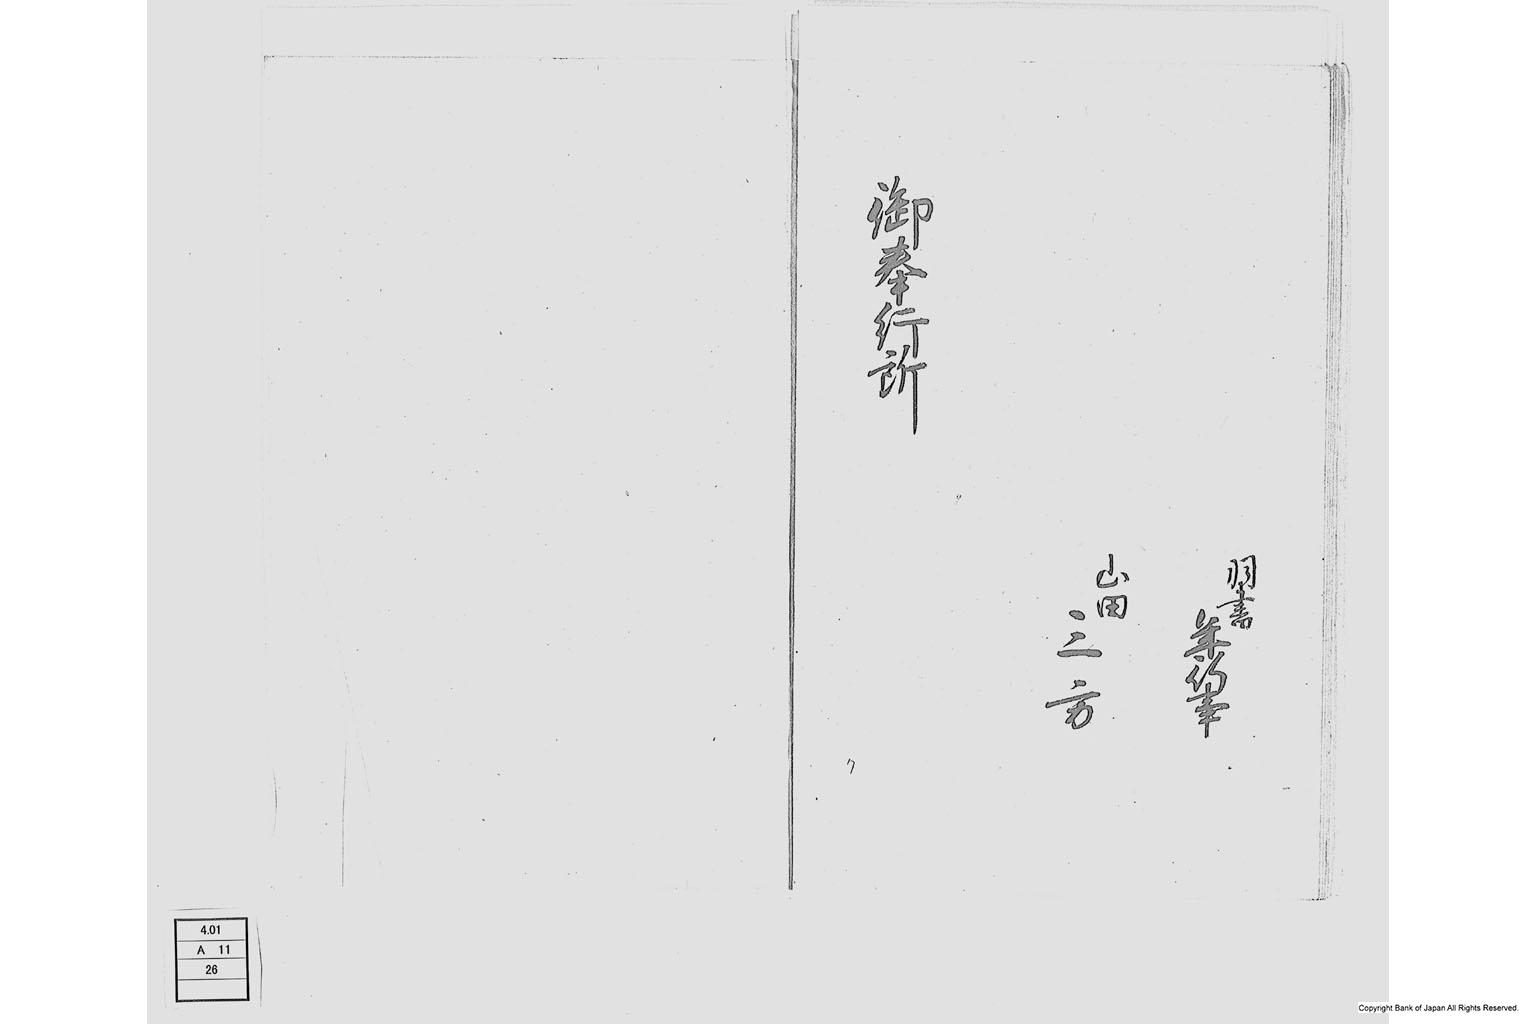 羽書
年行事
山田
三方
御奉行所
4.01
A 11
26
Copyright Bank of Japan All Rights Reserved.